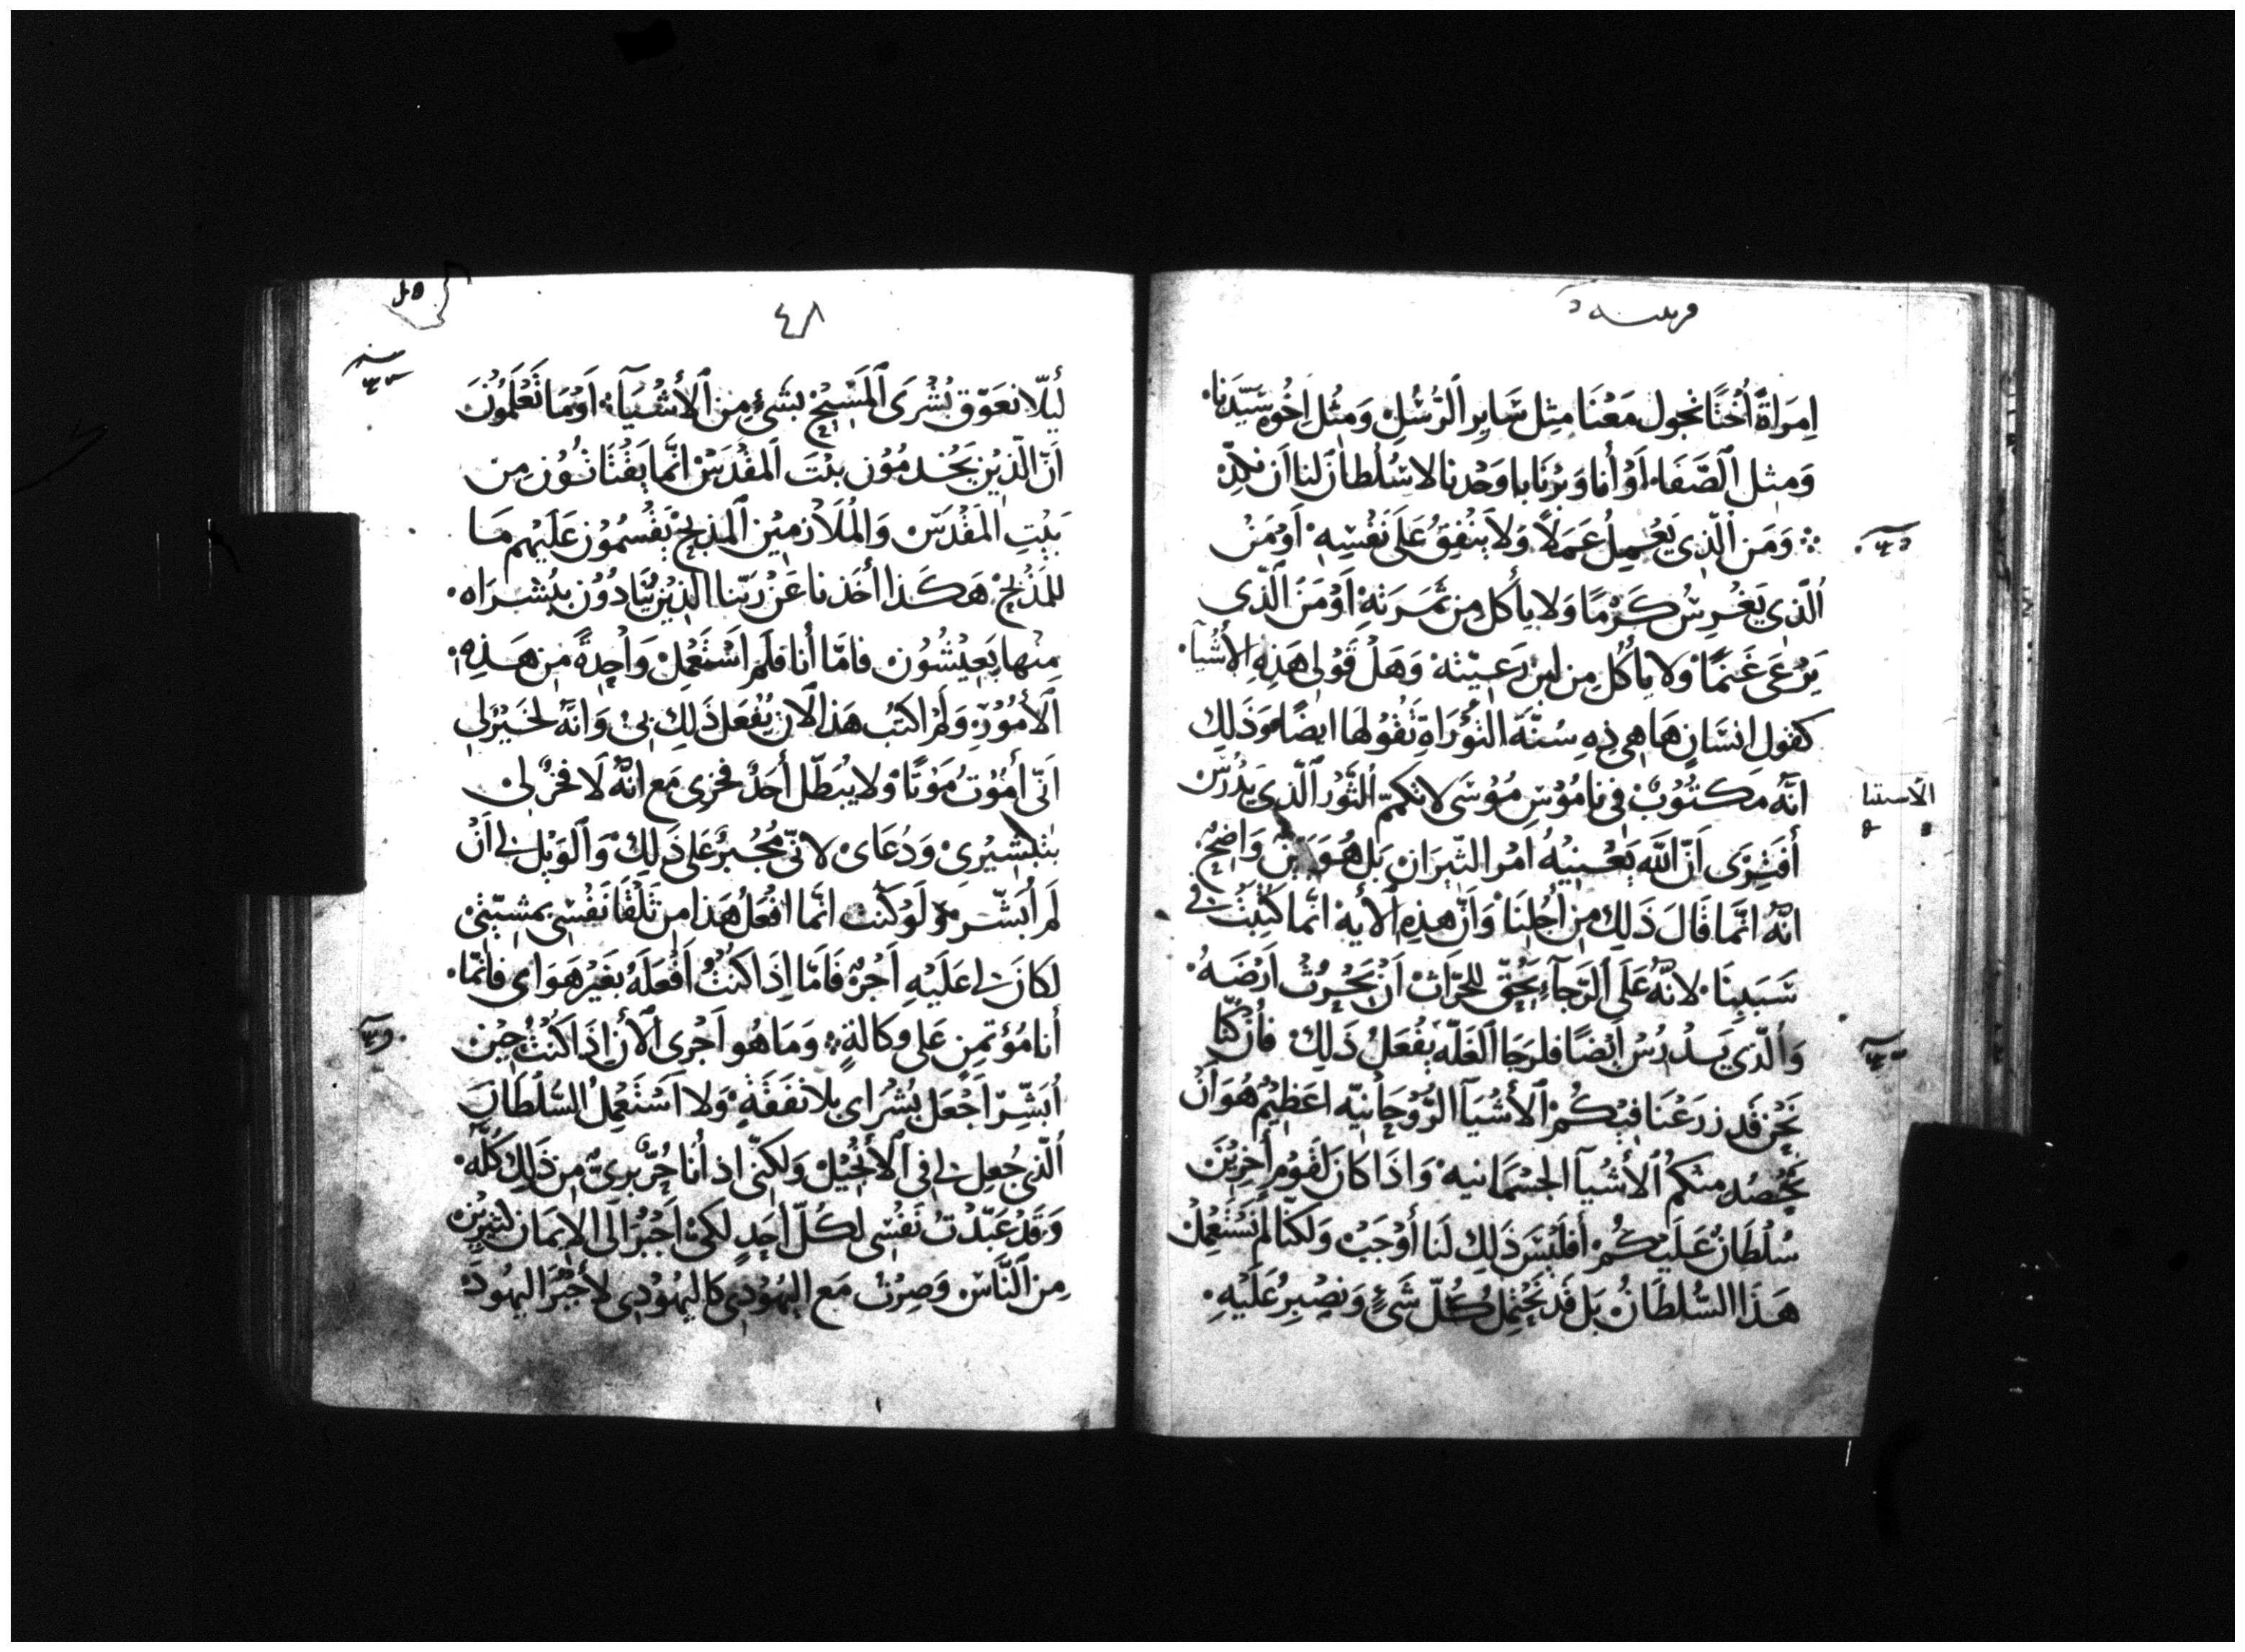 امرَاةً اُختًا تجول مَعْنَا مثِل سَايِر الرُّسُل وَمثِل اِخْوة سَيّدنَا
وَمثِل الصَّفَا، اَوْ أنا وَبرْنَابا وَحْدنا لا سُلْطانَ لنا اَن
وَمَن الّذِى يَعْمِلُ عَمَلاً وَلا يَنْفِقُ عَلَى نَفْسِهِ اَوْ مَنْ
الّذِى يَغْرِسُ كَرْمًا وَلا يأكل مِن ثَمَرَتهِ اَوْ مَن الّذِى
يَرْعَى غَنمًا وَلا يأكُل مِن لبن رَعيّته وَهَلْ قَوْلى هَذِهِ الأشْيَآ
كقول اِنسَانٍ هَا هِى ذِهِ سُنَّة التوْرَاةِ تَقُولهَا ايضًا وَذَلِكَ
انّه مَكتُوبٌ فى نامُوْسِ مُوْسَى لا تكمّ الثَّوْر الّذِى يَدْرُسْ
أفَتِرَى اَنّ اللّه يَعْنِيْهُ اَمْر الثِّيرَانِ بَل هُوَ بَيّن وَاضِحٌ
انّهُ انَّمَا قَالَ ذَلِك مِن أجْلِنَا وَاَنّ هذِهِ الأيه انّما كُتِبَتْ فى
سَبَبِنَا لانَّهُ عَلَى الرَّجَآءِ يَحِقّ للحَرّاثِ اَنْ يَحْرُثْ اَرْضَهُ
وَالّذِى يَدْرُسْ اَيْضًا فلرَجَا الغَلّه يَفْعَلُ ذَلِك فَاِنْ كُنّا
نَحْن قَد زرَعْنَا فِيْكُمْ الأشْيَآ الرُّوْحَانِيّه اعَظِيمٌ هُوَ اَنْ
نَحْصُد مِنكمُ الأشْيَآ الجسْمَانيه وَاذَا كَانَ لقَوْمٍ أخِرِيْنَ
سُلْطَانٌ عَلَيْكُمْ أفَلَيْسَ ذَلِكَ لَنَا أوْجَبْ وَلكنّا لمْ نَسْتَعْمِلْ
هَذَا السُّلطَانُ بَل قَد نَحْتمِلُ كُلّ شَئٍ وَنصْبِرُ عَلَيْهِ
الأستثنا
٤٨
ليلّا نعَوّق بُشْرَى المَسِيْح بشَئٍ مِن الأشْيَآ اَوَمَا تَعْلَمُوْنَ
اَنّ الّذِيْن يَخْدمُوْن بيْتَ المقْدَسْ انّما يَقْتَاتُوْن مِن
بَيْتِ المَقْدَسْ وَالمُلَازمِيْن المذبح يَقْسُمُوْن عَلَيْهم مَا
للمَذْبحْ هَكَذا أخَذنا عَنْ رَبّنا الّذِيْن يُنَادُوْن بِبُشْرَاه
مِنْها يَعِيْشُوْن فامّا أنا فلَم اَسْتَعْمِلْ وَاحِدةً مِن هَذِهِ
الأمُوْر وَلم اكتُب هَذا لان يُفْعَل ذَلِك بىْ وَانّهُ لخَيْرٌ لِى
اَنّى أمُوْتُ مَوْتًا وَلا يُبَطّل أحَدٌ فخرى مَع انّهُ لَا فخرٌ لىْ
بتبْشِيْرِى وَدُعَاى لانّى مُجْبَرٌ عَلى ذَلِكْ وَالوَيْل لى اَنْ
لَم أُبَشّر وَلَوْ كُنْت انّما افْعَلُ هَذا من تَلْقَا نَفْسِى بمشِيّتى
لَكَانَ لى عَلَيْهِ اَجْرٌ فَاَمّا اِذَا كُنْتُ اَفْعَلَهُ بغَيْر هَوَاى فانّما
أنا مُؤتَمن عَلى وكالةٍ وَمَا هُو اَجْرى الأن اِذَا كُنْتُ حِيْن
اُبَشِّرْ اَجْعَل بُشْرَاى بلا نفَقَةٍ وَلا اَسْتَعْمِلُ السُّلْطَان
الّذِى جُعِل لى فى الأنْجِيْل وَلكنّى اذ أنا حُرّ برىّ مِن ذَلِك كُلّه
وَقَدْ عَبّدْتُ نَفْسِى لكُلّ اَحَدٍ لكىْ اَجْبُرَ اَلَى الاِيمَان كثِيْرِيْن
مِن النَّاسْ وَصِرْتُ مَع اليَهُوْدِى كاليَهُوْدِى لأجْبُرَ اليهُودَ